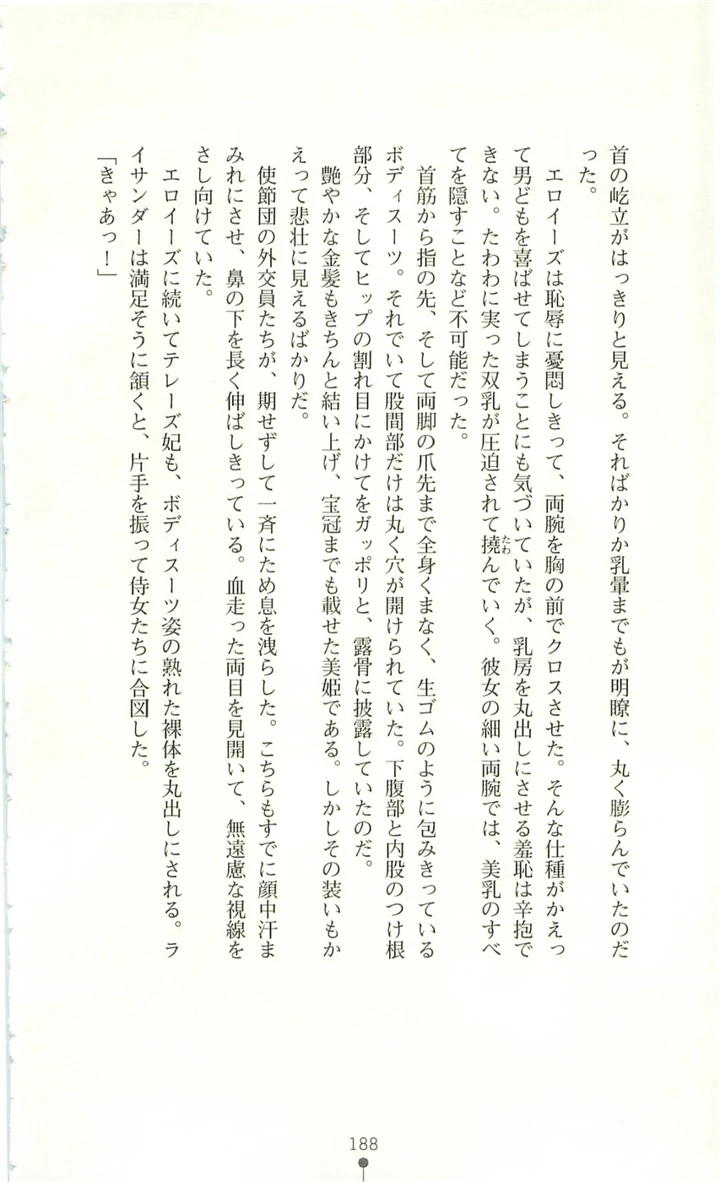 首の屹立がはっきりと見える。そればかりか乳暈までもが明瞭に、丸く膨らんでいたのだ
った。
エロイーズは恥辱に憂悶しきって、両腕を胸の前でクロスさせた。そんな仕種がかえっ
て男どもを喜ばせてしまうことにも気づいていたが、乳房を丸出しにさせる羞恥は辛抱で
きない。たわわに実った双乳が圧迫されて撓んでいく。彼女の細い両腕では、美乳のすべ
たわ
てを隠すことなど不可能だった。
首筋から指の先、そして両脚の爪先まで全身くまなく、生ゴムのように包みきっている
ボディスーツ。それでいて股間部だけは丸く穴が開けられていた。下腹部と内股のつけ根
部分、そしてヒップの割れ目にかけてをガッポリと、露骨に披露していたのだ。
艶やかな金髪もきちんと結い上げ、宝冠までも載せた美姫である。しかしその装いもか
えって悲壮に見えるばかりだ。
使節団の外交員たちが、期せずして一斉にため息を洩らした。こちらもすでに顔中汗ま
みれにさせ、鼻の下を長く伸ばしきっている。血走った両目を見開いて、無遠慮な視線を
さし向けていた。
エロイーズに続いてテレーズ妃も、ボディスーツ姿の熟れた裸体を丸出しにされる。ラ
イサンダーは満足そうに頷くと、片手を振って侍女たちに合図した。
「きゃあっ！」
188